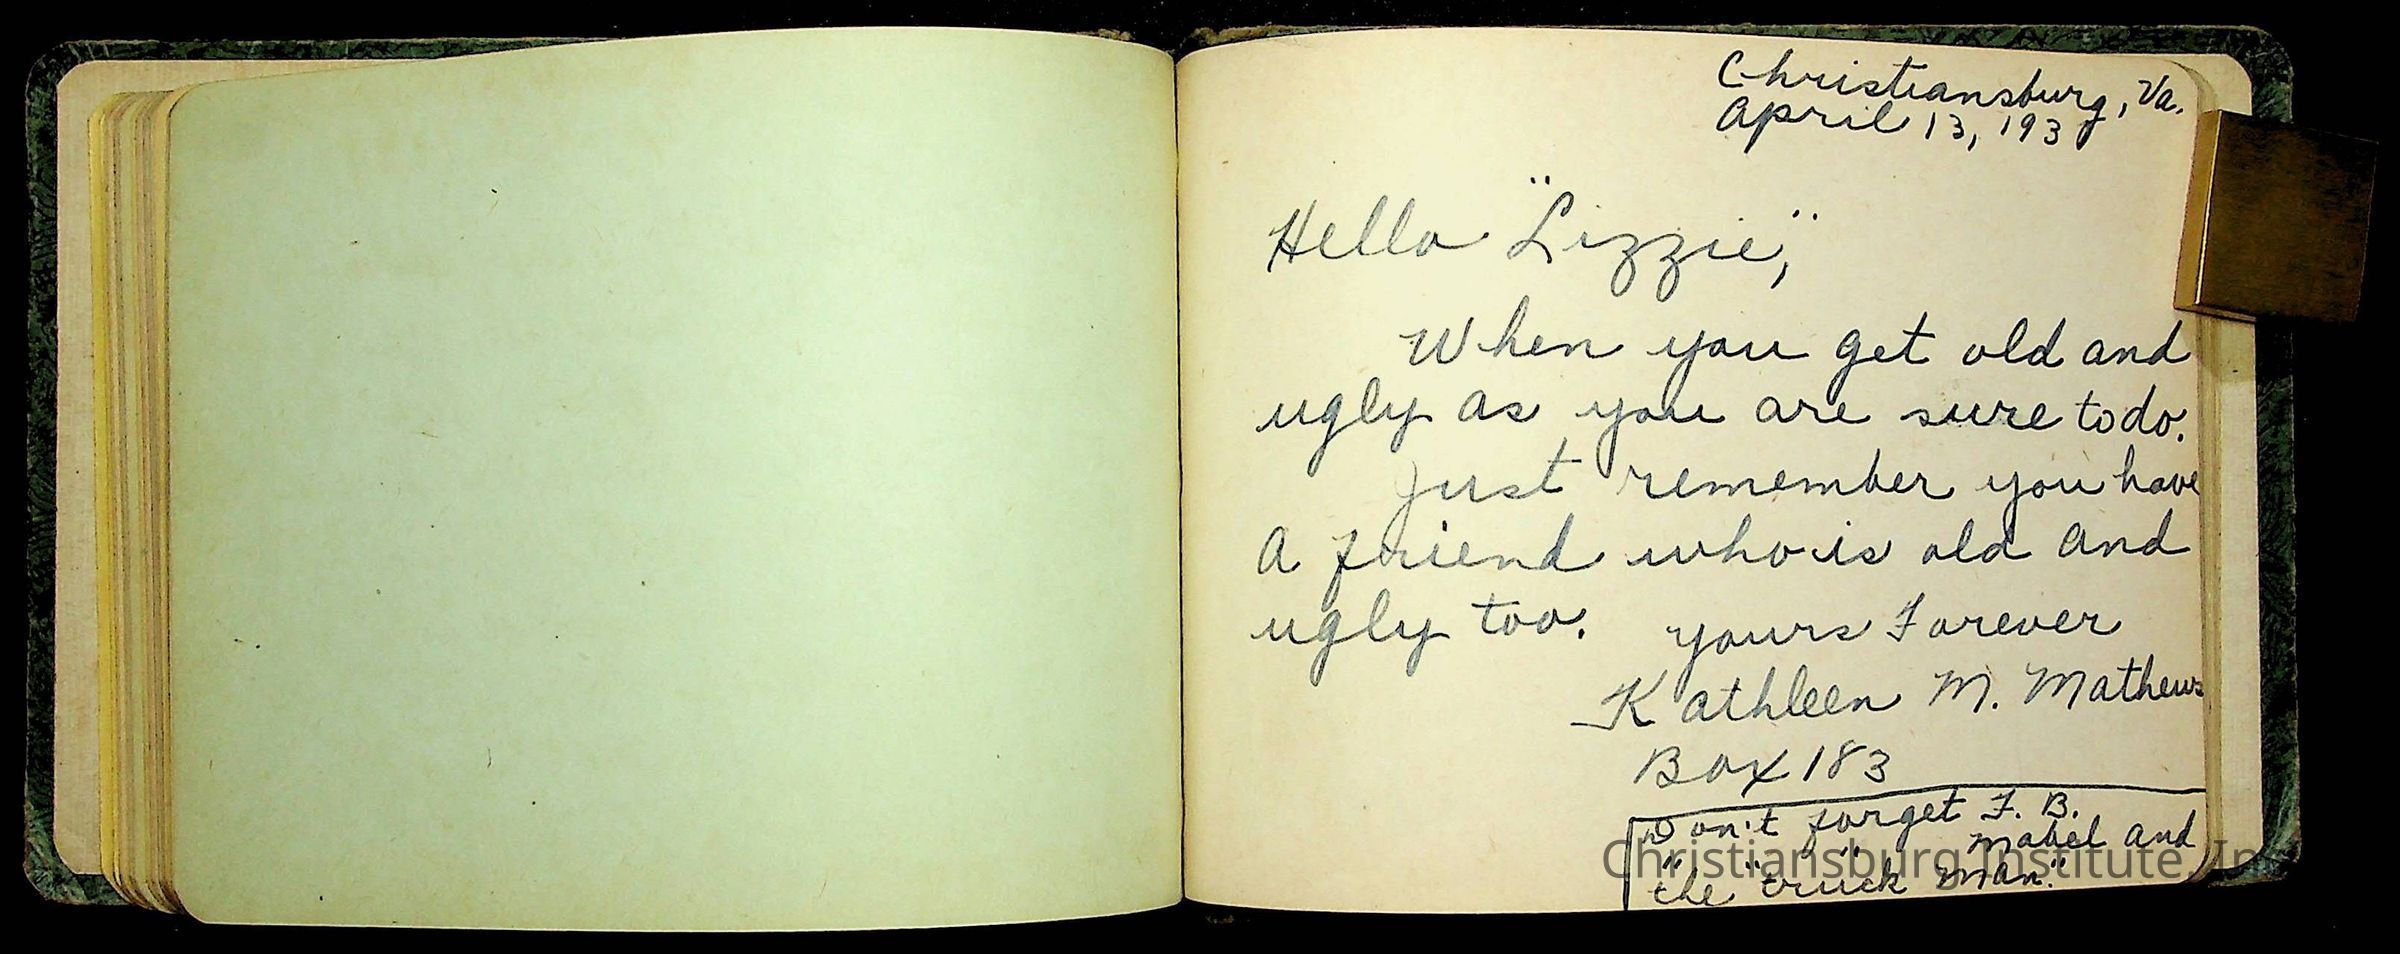 Christiansburg, Va.
April 13, 1937
Hello "Lizzie",
When you get old and
ugly as you are sure to do.
Just remember you have
a friend who is old and
ugly too.
yours Forever
Kathleen M. Mathews
Box 183
Don't forget F. B.
" " " Mabel and
the truck man."
Christiansburg Institute, In